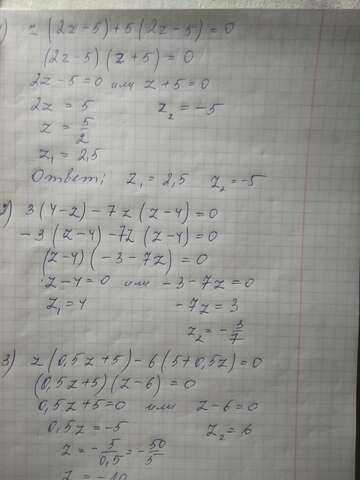 1) z(2z-5)+5(2z-5)=0
(2z-5)(z+5)=0
2z-5=0 или z+5=0
2z=5 z₂=-5
z=5/2
z₁=2,5
Ответ: z₁=2,5 z₂=-5
2) 3(4-z)-7z(z-4)=0
-3(z-4)-7z(z-4)=0
(z-4)(-3-7z)=0
z-4=0 или -3-7z=0
z₁=4 -7z=3
z₂=-3/7
3) z(0,5z+5)-6(5+0,5z)=0
(0,5z+5)(z-6)=0
0,5z+5=0 или z-6=0
0,5z=-5 z₂=6
z=-5/0,5=-50/5
z=-10